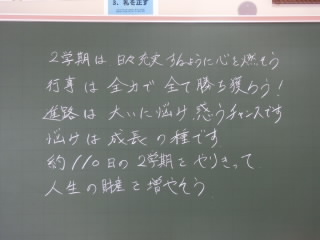 3、礼を正す
2学期は 日々充実するように心を燃そう
行事は 全力で 全て勝ち獲ろう!
進路は 大いに悩め 惑うチャンスです
悩みは 成長の種です
約110日の2学期を やりきって
人生の財産を増やそう